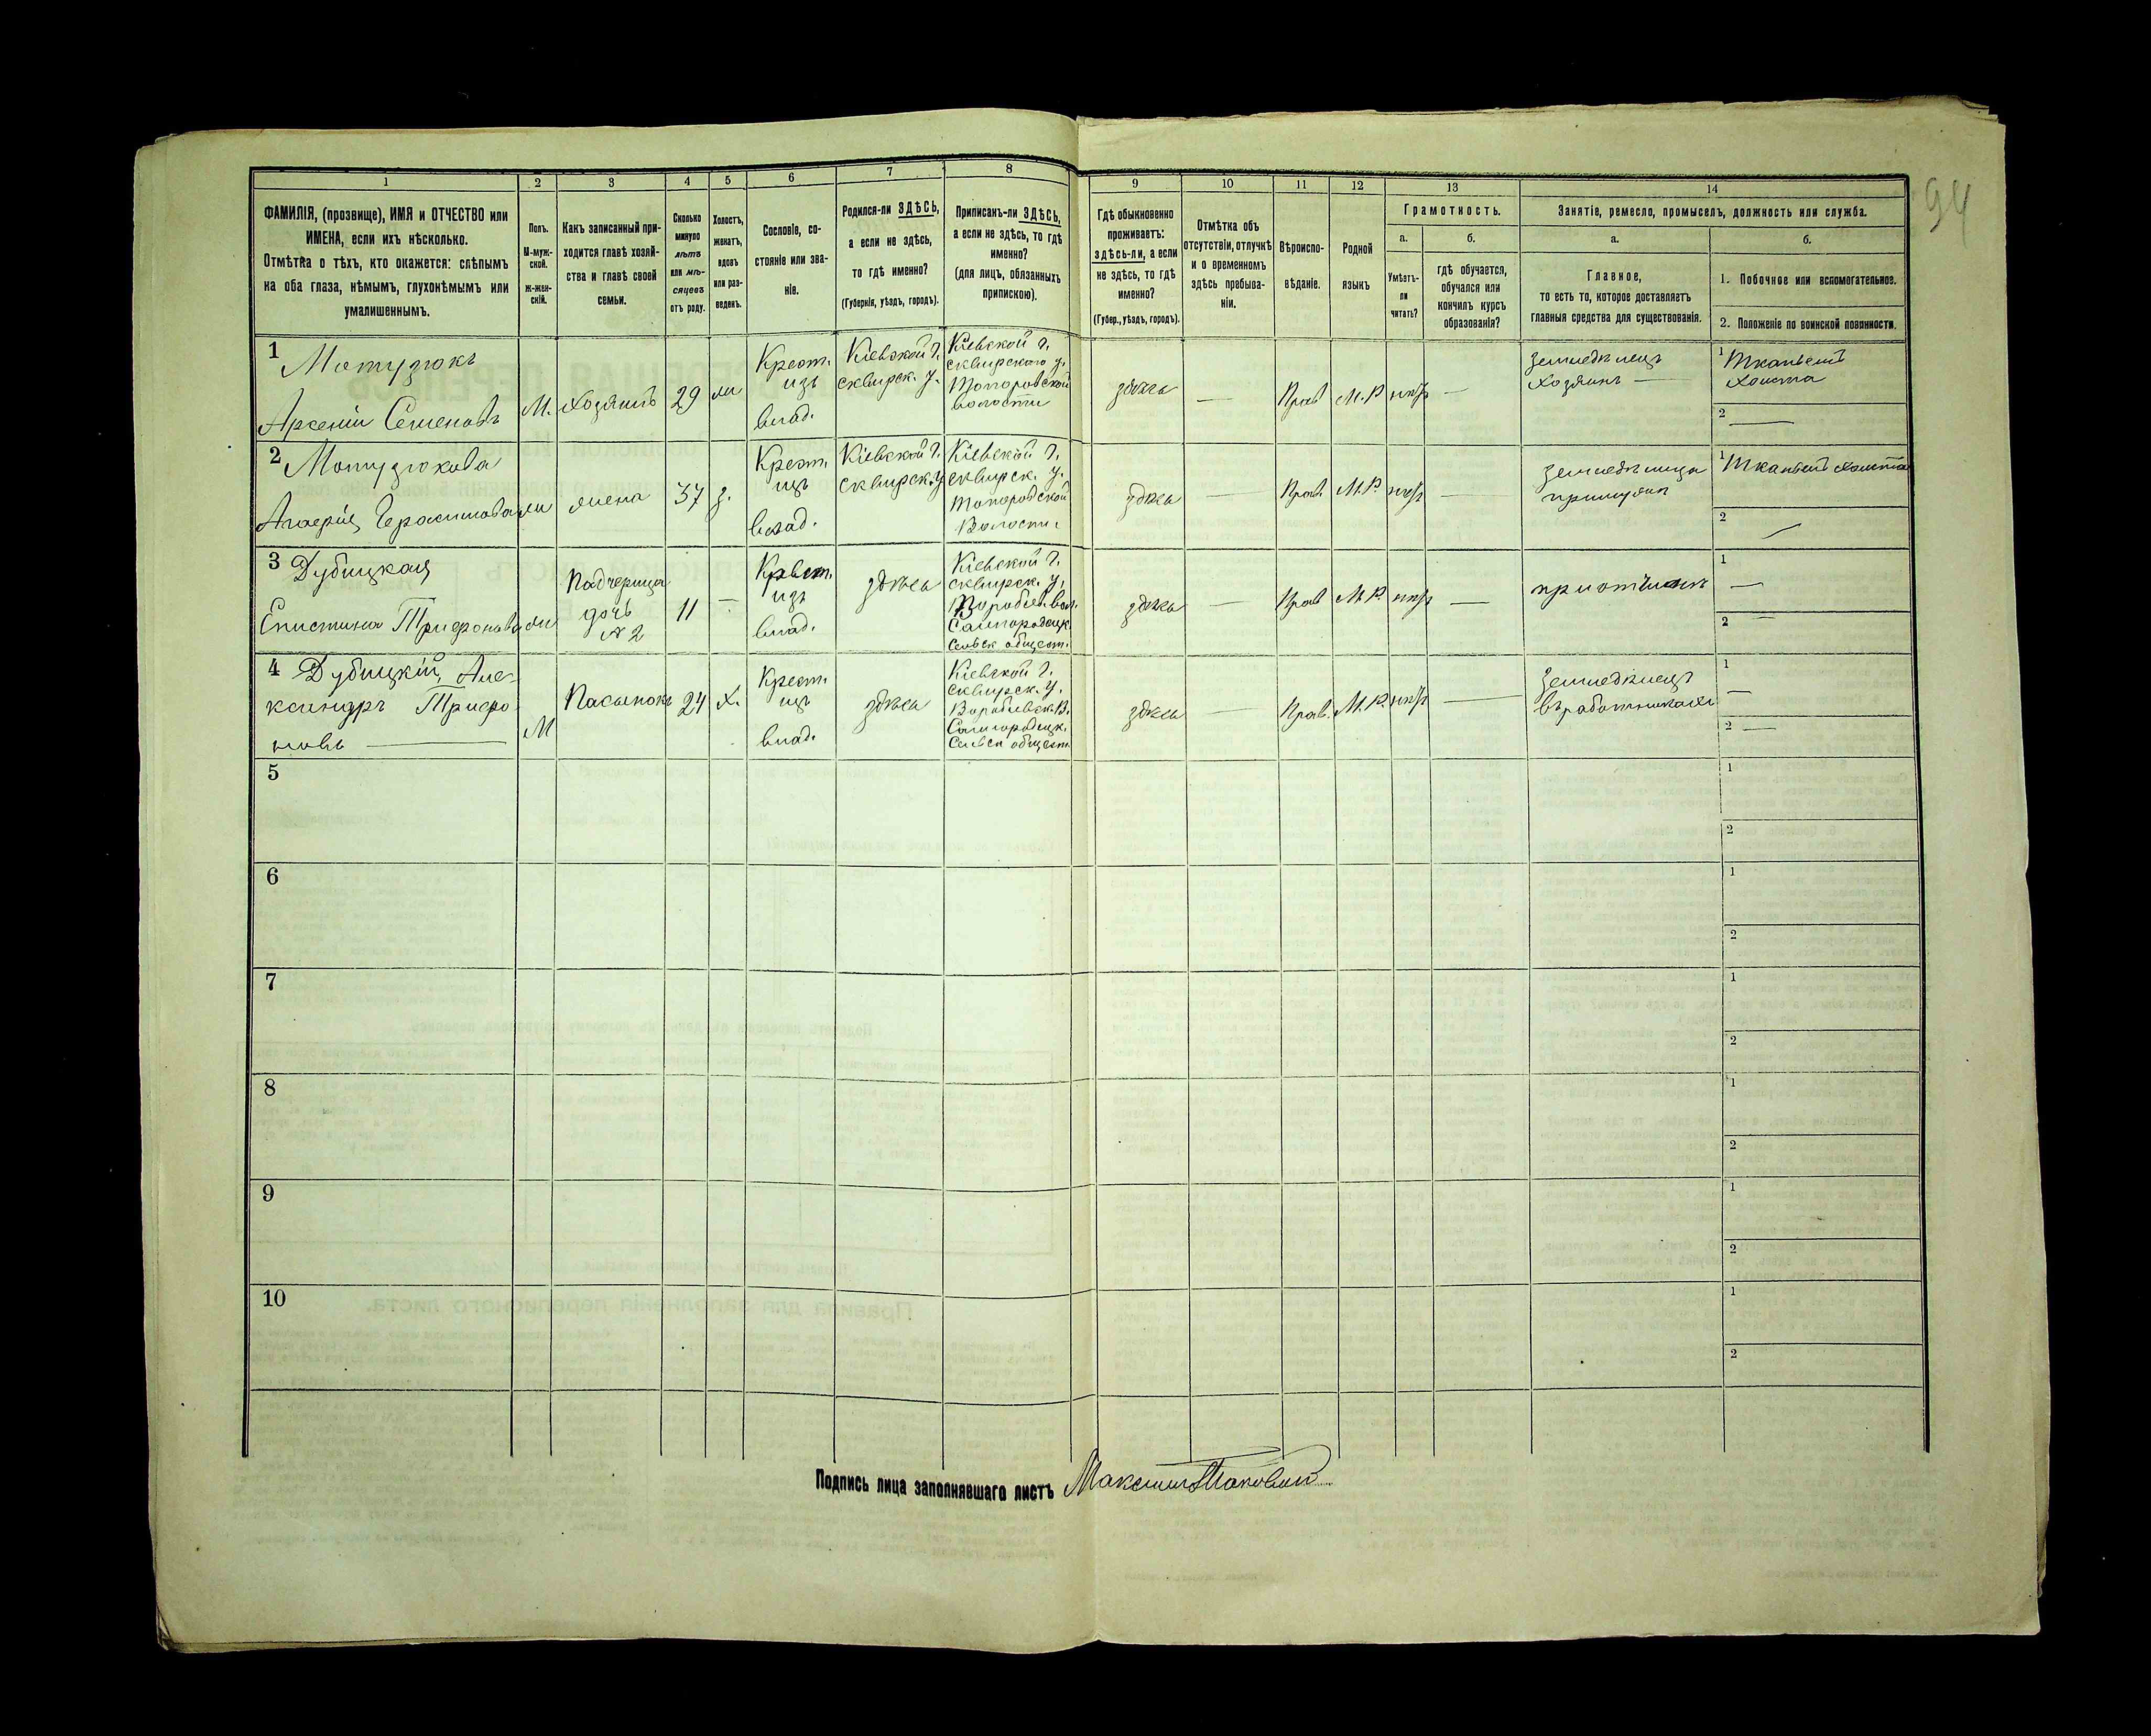 94
1 2 3 4 5 6 7 8 9 10 11 12 13 14
ФАМИЛІЯ, (прозвище), ИМЯ и ОТЧЕСТВО или
ИМЕНА, если ихъ нѣсколько.
Отмѣтка о тѣхъ, кто окажется: слѣпымъ
на оба глаза, нѣмымъ, глухонѣмымъ или
умалишеннымъ.
Полъ.
М-муж-
ской.
Ж-жен-
скій.
Какъ записанный при-
ходится главѣ хозяй-
ства и главѣ своей
семьи.
Сколько
минуло
лѣтъ
или мѣ-
сяцевъ
отъ роду.
Холостъ,
женатъ,
вдовъ
или раз-
веденъ.
Сословіе, со-
стояніе или зва-
ніе.
Родился-ли ЗДѢСЬ,
а если не здѣсь,
то гдѣ именно?
(Губернія, уѣздъ, городъ).
Приписанъ-ли ЗДѢСЬ,
а если не здѣсь, то гдѣ
именно?
(для лицъ, обязанныхъ
припискою).
Гдѣ обыкновенно
проживаетъ:
здѣсь-ли, а если
не здѣсь, то гдѣ
именно?
(Губер., уѣздъ, городъ).
Отмѣтка объ
отсутствіи, отлучкѣ
и о временномъ
здѣсь пребыва-
ніи.
Вѣроиспо-
вѣданіе.
Родной
языкъ
Грамотность.
а.
Умѣетъ-
ли
читать?
б.
гдѣ обучается,
обучался или
кончилъ курсъ
образованія?
Занятіе, ремесло, промыселъ, должность или служба.
а.
Главное,
то есть то, которое доставляетъ
главныя средства для существованія.
б.
1. Побочное или вспомогательное.
2. Положеніе по воинской повинности.
1 Мотузюкъ
Арсеній Семеновъ
М.
Хозяинъ
29
Крест.
изъ
влад.
Кіевской г.
сквирск. у.
Кіевской г.
сквирскаго у.
Топоровской
волости
здѣсь
—
Прав
М.Р.
—
земледѣлецъ
хозяинъ —
1
2 —
2 Мотузюкова
Герасимова
жена
37
з.
Крест.
изъ
влад.
Кіевской г.
сквирск. у.
Кіевской г.
сквирск. у.
Топоровской
Волости
здѣсь
—
Прав.
М.Р.
—
1
2 —
3 Дубицкая
Трифонова
Падчерица
дочь
№ 2
11
—
Крест.
изъ
влад.
здѣсь
Кіевской г.
сквирск. у.
Воробіев. вол.
Самгородецк.
Сельск общест.
здѣсь
—
Прав
М.Р.
—
1 —
2 —
4 Дубицкій, Але-
ксандръ Трифо-
новъ —
М
Пасынокъ
24
Х.
Крест.
изъ
влад.
здѣсь
Кіевской г.
сквирск. у.
Воробіевск. В.
Самгородецк.
Сельск общест.
здѣсь
—
Прав.
М.Р.
—
земледѣлецъ
въ работникахъ
1 —
2 —
5
1
2
6
1
2
7
1
2
8
1
2
9
1
2
10
1
2
Подпись лица заполнявшаго листъ